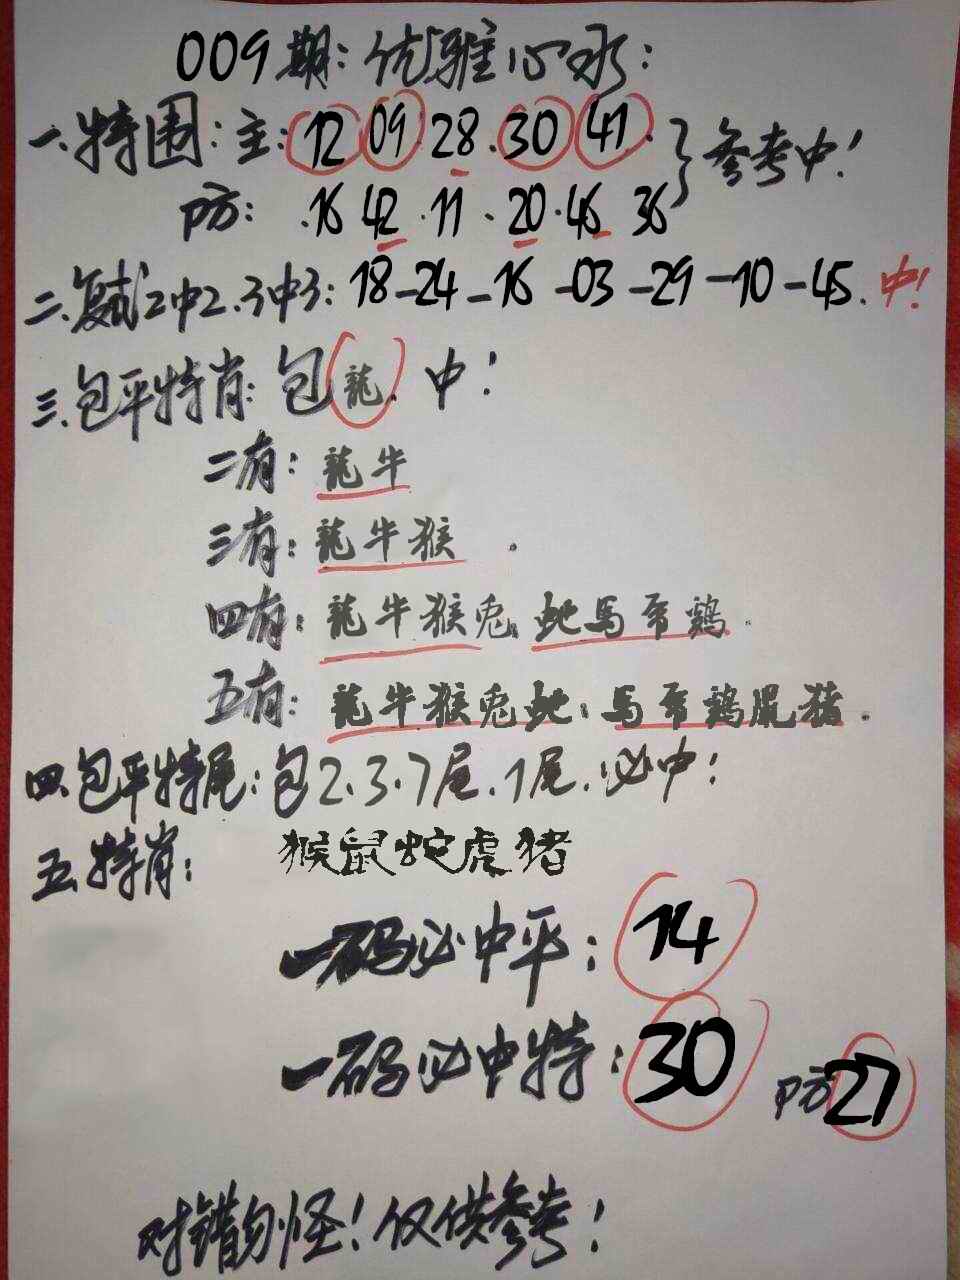 009期：优雅心水：
一.特围：主：12 09·28·30 41· 参考中！
防：·16 42·11·20·46 36
二.复式2中2.3中3：18-24-16-03-29-10-45.中！
三.包平特肖：包龍.中！
二有：龍牛
三有：龍牛猴.
四有：龍牛猴兎.蛇馬帝鶏.
五有：龍牛猴兎蛇.馬帝鶏鼠豬.
四.包平特尾：包2.3.7尾.1尾.必中！
五.特肖：猴鼠蛇虎猪
一码必中平：14
一码必中特：30 防27
对错勿怪！仅供参考！